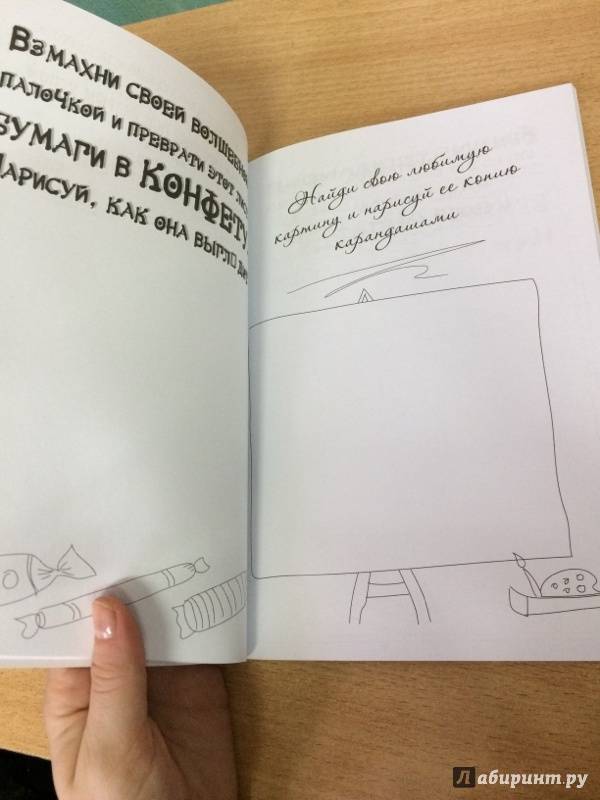 Взмахни своей
палочкой и преврати этот
бумаги в конфету
Нарисуй, как она выгляди
Найди свою любимую
картину и нарисуй ее копию
карандашами
Лабиринт.ру